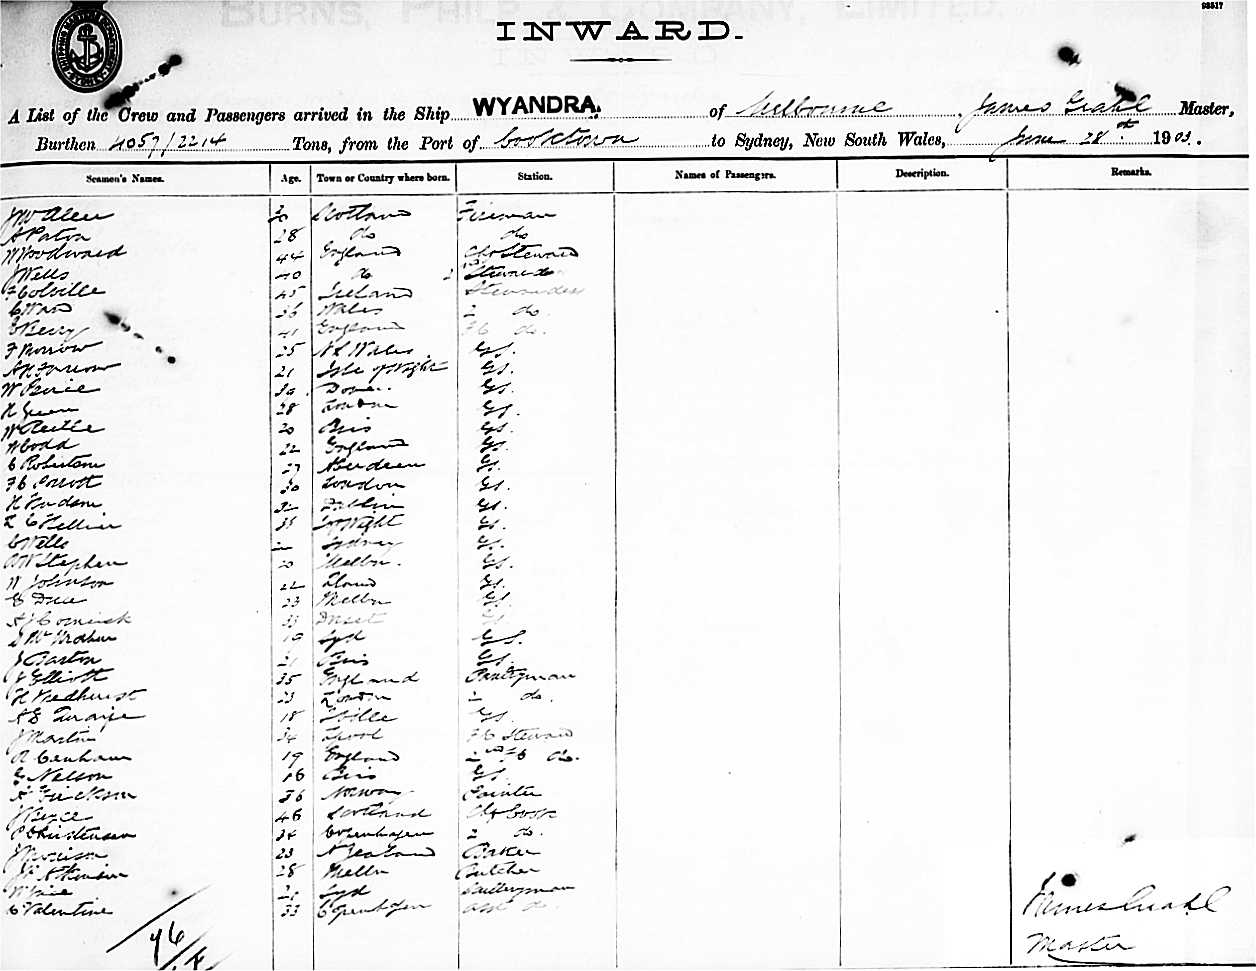 93517
BURNS, PHILP & COMPANY LIMITED.
INWARD.
A List of the Crew and Passengers arrived in the Ship WYANDRA. of Melbourne, James Grahl Master,
Burthen 4057/2214 Tons, from the Port of Cooktown to Sydney, New South Wales, June 28th 1903.
Seamen's Names. Age. Town or Country where born. Station. Names of Passengers. Description. Remarks.
30 Scotland Fireman
A Paton 28 do do
W Woodward 44 England Chf Steward
J Wells 40 do 2nd Steward
F Colville 45 Ireland Stewardess
C Ward 36 Wales 2 do.
E Berry 41 England FC do.
F Morrow 25 N S Wales GS.
A H Farrow 21 Isle of Wight GS.
W 30 Dover. GS.
H Green 28 London GS.
W 20 Bris GS.
W Codd 22 England GS.
C Robertson 27 Aberdeen GS.
F C 30 London GS.
H Hudson 32 Dublin GS.
C Hellier Wight GS.
C Wells Sydney GS.
W Stephen 20 Melbn. GS.
W Johnson 22 GS.
23 Melbn GS.
33 Dorset GS.
19 Syd GS.
J Barton 21 Bris GS.
J Elliott 35 England Pantryman
H Medhurst 23 London 2 do.
A E 18 GS.
J Martin 34 Lpool FC Steward
A Benham 19 England 2nd FC do.
G Nelson 18 Bris GS.
A Erickson 36 Norway Painter
J 46 Scotland Chf Cook
P Christensen 34 Copenhagen 2 do.
J Morrison 23 N Zealand Baker
Atkinson 28 Melbn Butcher
W 21 Syd Sculleryman
C Valentine 33 Copenhagen Asst do.
James Grahl
Master
76